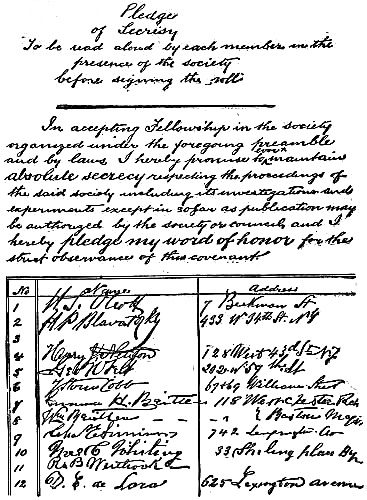 Pledge
of Secrisy
To be read aloud by each member in the
presence of the society
before signing the roll
In accepting Fellowship in the society
organized under the foregoing preamble
and by laws, I hereby promise to maintain
absolute secrecy respecting the proceedings of
the said society including its investigations and
experiments except in so far as publication may
be authorized by the society or council, and I
hereby pledge my word of honor for the
strict observance of this covenant
No Name Address
1 H. S. Olcott 7 Beekman St
2 H P Blavatsky 433 W 34th St. N Y
3
4 Henry J. Newton 128 West 43d St. N Y
5
6 Cobb 67+69 William Street
7 Emma H. Britten 118 West Chester
8 Wm Britten " " " Boston
9 742 Lexington Av
10
11 R B Westbrook
12 D. E. de Lara 625 Lexington avenue